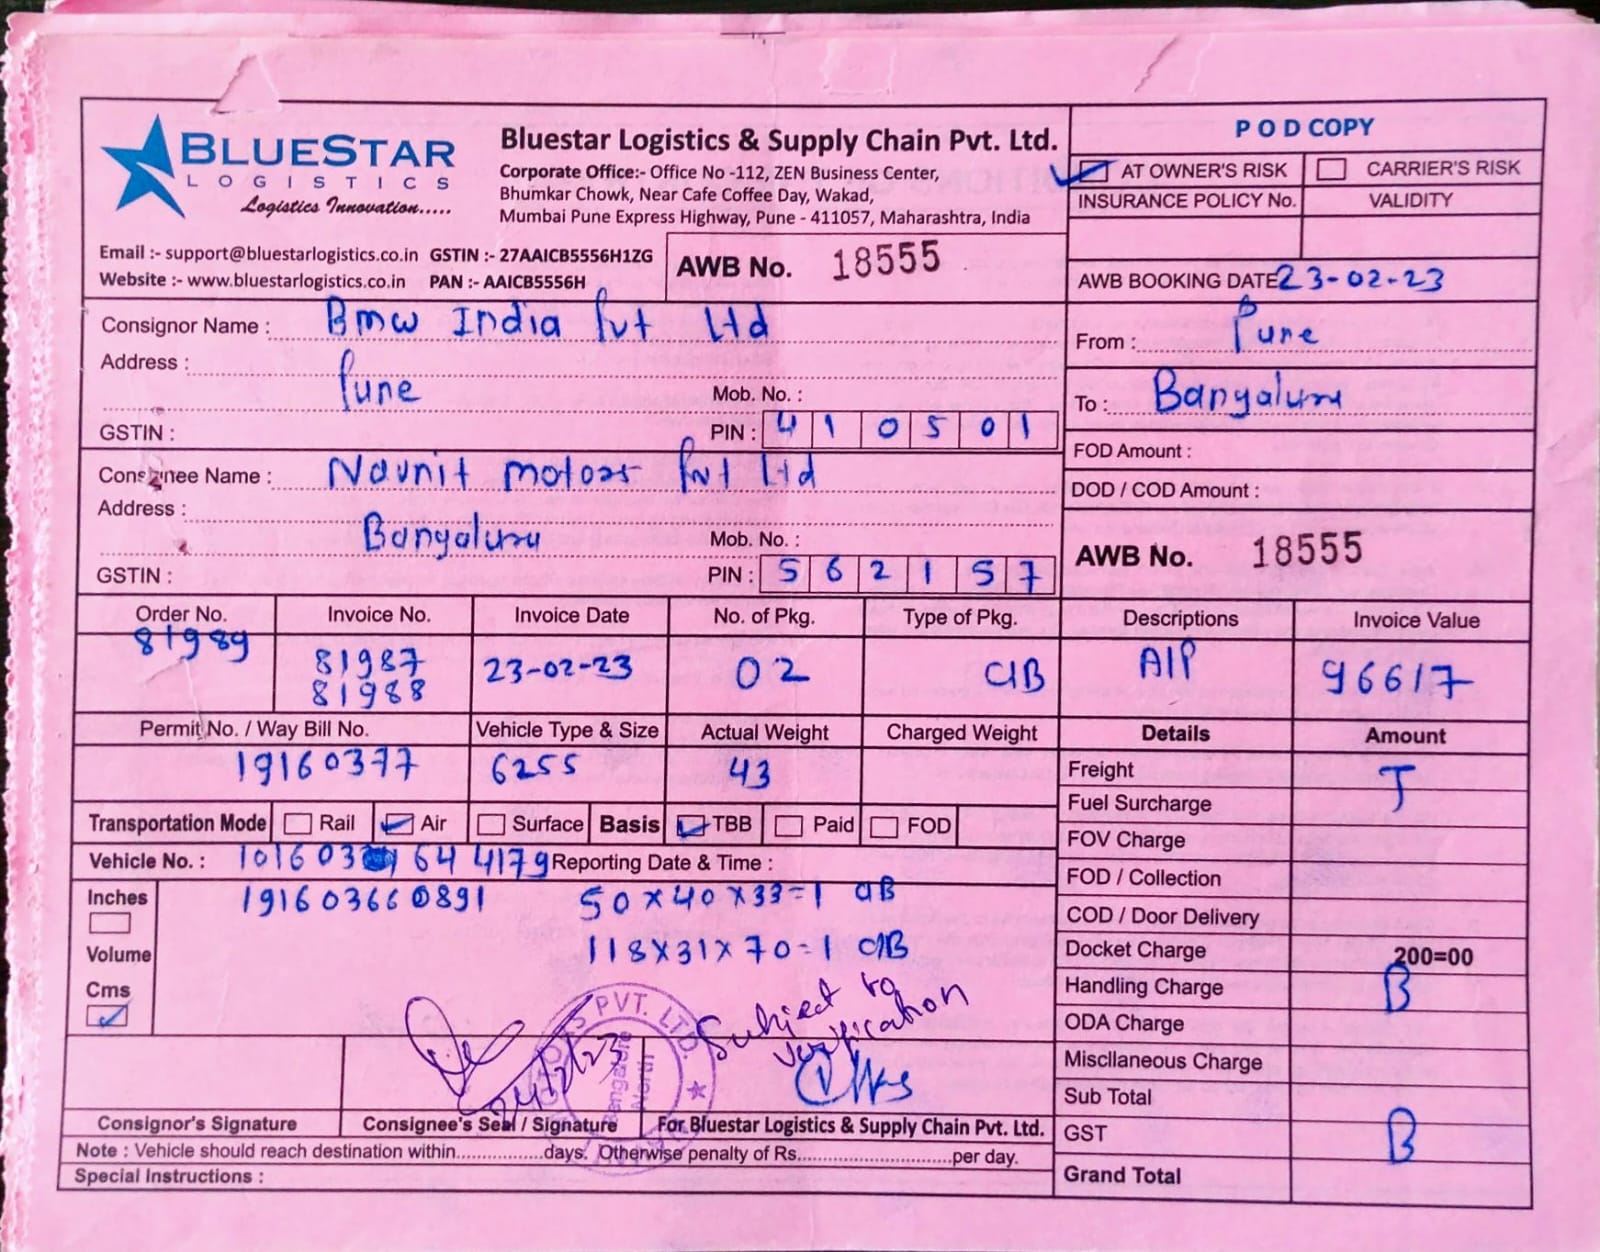 BLUESTAR
LOGISTICS
Logistics Innovation.....
Bluestar Logistics & Supply Chain Pvt. Ltd.
Corporate Office:- Office No -112, ZEN Business Center,
Bhumkar Chowk, Near Cafe Coffee Day, Wakad,
Mumbai Pune Express Highway, Pune - 411057, Maharashtra, India
Email :- support@bluestarlogistics.co.in GSTIN :- 27AAICB5556H1ZG
Website :- www.bluestarlogistics.co.in PAN :- AAICB5556H
AWB No. 18555
POD COPY
AT OWNER'S RISK CARRIER'S RISK
INSURANCE POLICY No. VALIDITY
AWB BOOKING DATE 23-02-23
Consignor Name : Bmw India Pvt Ltd
Address :
Pune
Mob. No. :
GSTIN :
PIN : 410501
From : Pune
To : Bangaluru
Consinee Name : Navnit motors Pvt Ltd
Address :
Bangaluru
Mob. No. :
GSTIN :
PIN : 562157
FOD Amount :
DOD / COD Amount :
AWB No. 18555
Order No. Invoice No. Invoice Date No. of Pkg. Type of Pkg. Descriptions Invoice Value
81989 81987 23-02-23 02 C/B A/P 96617
81988
Permit No. / Way Bill No. Vehicle Type & Size Actual Weight Charged Weight Details Amount
19160377 6255 43
Freight T
Fuel Surcharge
Transportation Mode Rail Air Surface Basis TBB Paid FOD
FOV Charge
Vehicle No. : 64 4179 Reporting Date & Time :
FOD / Collection
Inches 191603660891 50x40x33=1 C/B
COD / Door Delivery
Volume 118x31x70=1 C/B
Docket Charge 200=00
Cms
Handling Charge B
Subject to
verification
ODA Charge
Miscllaneous Charge
PVT. LTD.
Bangalore
North
24/2/23
Sub Total
Consignor's Signature Consignee's Seal / Signature For Bluestar Logistics & Supply Chain Pvt. Ltd.
GST B
Note : Vehicle should reach destination within................days. Otherwise penalty of Rs............................per day.
Special Instructions :
Grand Total